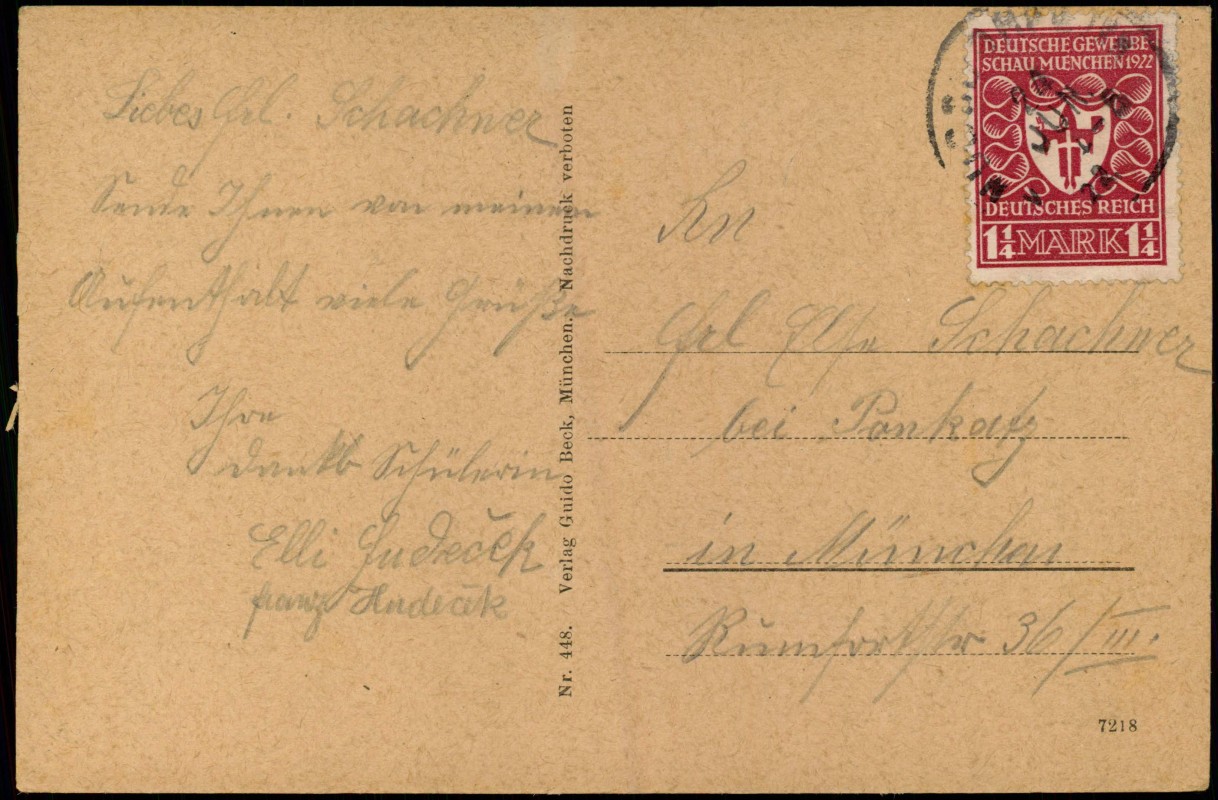 Liebes Frl. Schachner
Sende Ihnen von meinem
Aufenthalt viele Grüße
Ihre
dankb Schülerin
Elli Hudeček
franz Hudeček
Nr. 448. Verlag Guido Beck, München. Nachdruck verboten
DEUTSCHE GEWERBE
SCHAU MUENCHEN 1922
DEUTSCHES REICH
1¼ MARK 1¼
An
Frl Else Schachner
bei Ponkatz
in München
Rumfortstr 36/III.
7218